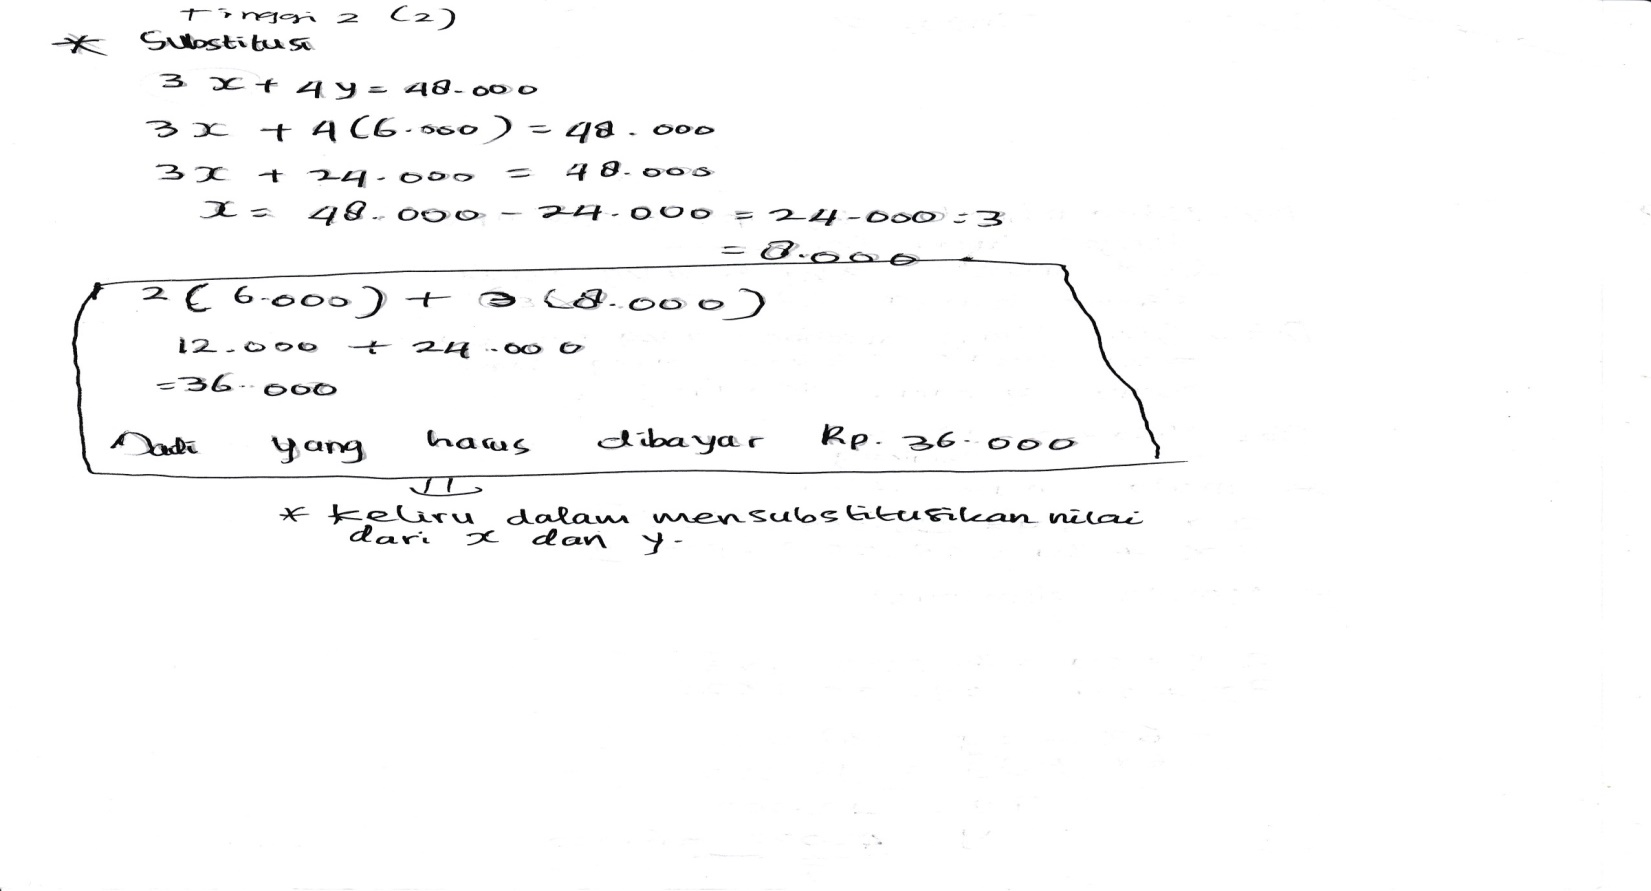 Tinggi 2 (2)
* Substitusi
3x + 4y = 48.000
3x + 4(6.000) = 48.000
3x + 24.000 = 48.000
x = 48.000 - 24.000 = 24.000 : 3
= 8.000
2(6.000) + 3(8.000)
12.000 + 24.000
= 36.000
Jadi yang harus dibayar Rp. 36.000
* keliru dalam mensubstitusikan nilai
dari x dan y.